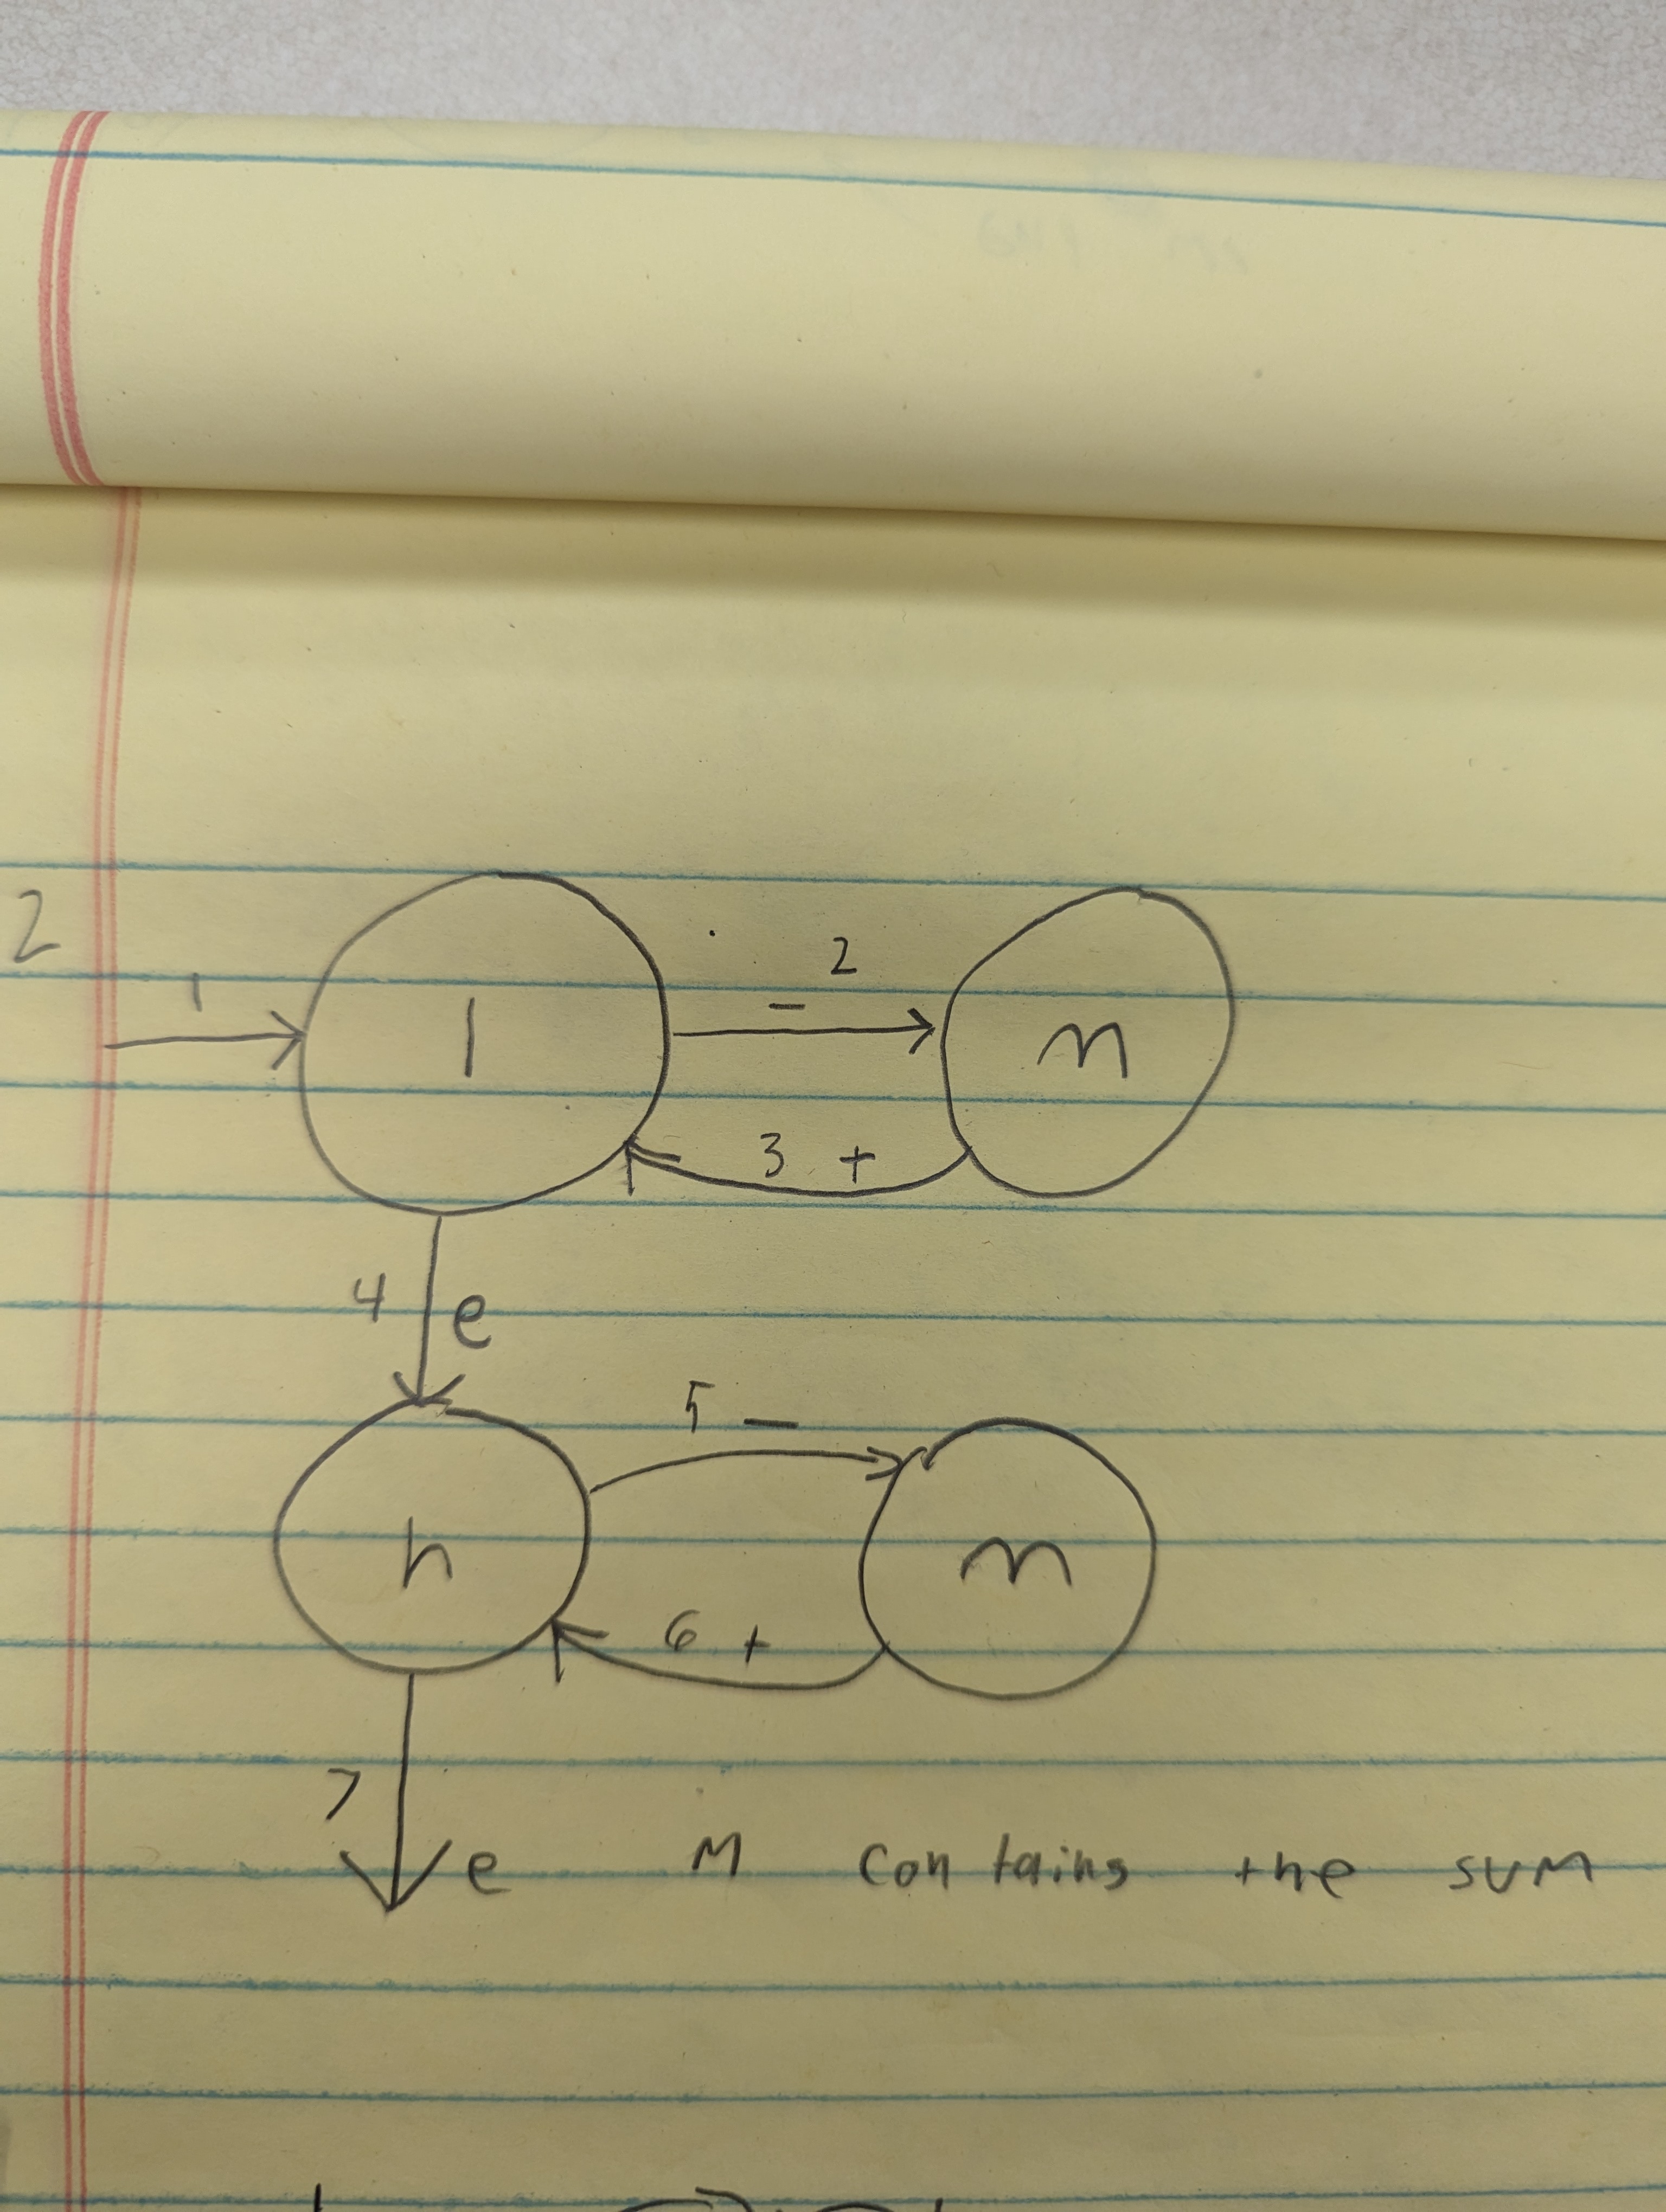 2
1 l - 2 m
3 +
4 e
5 -
h m
6 +
7 e M contains the sum